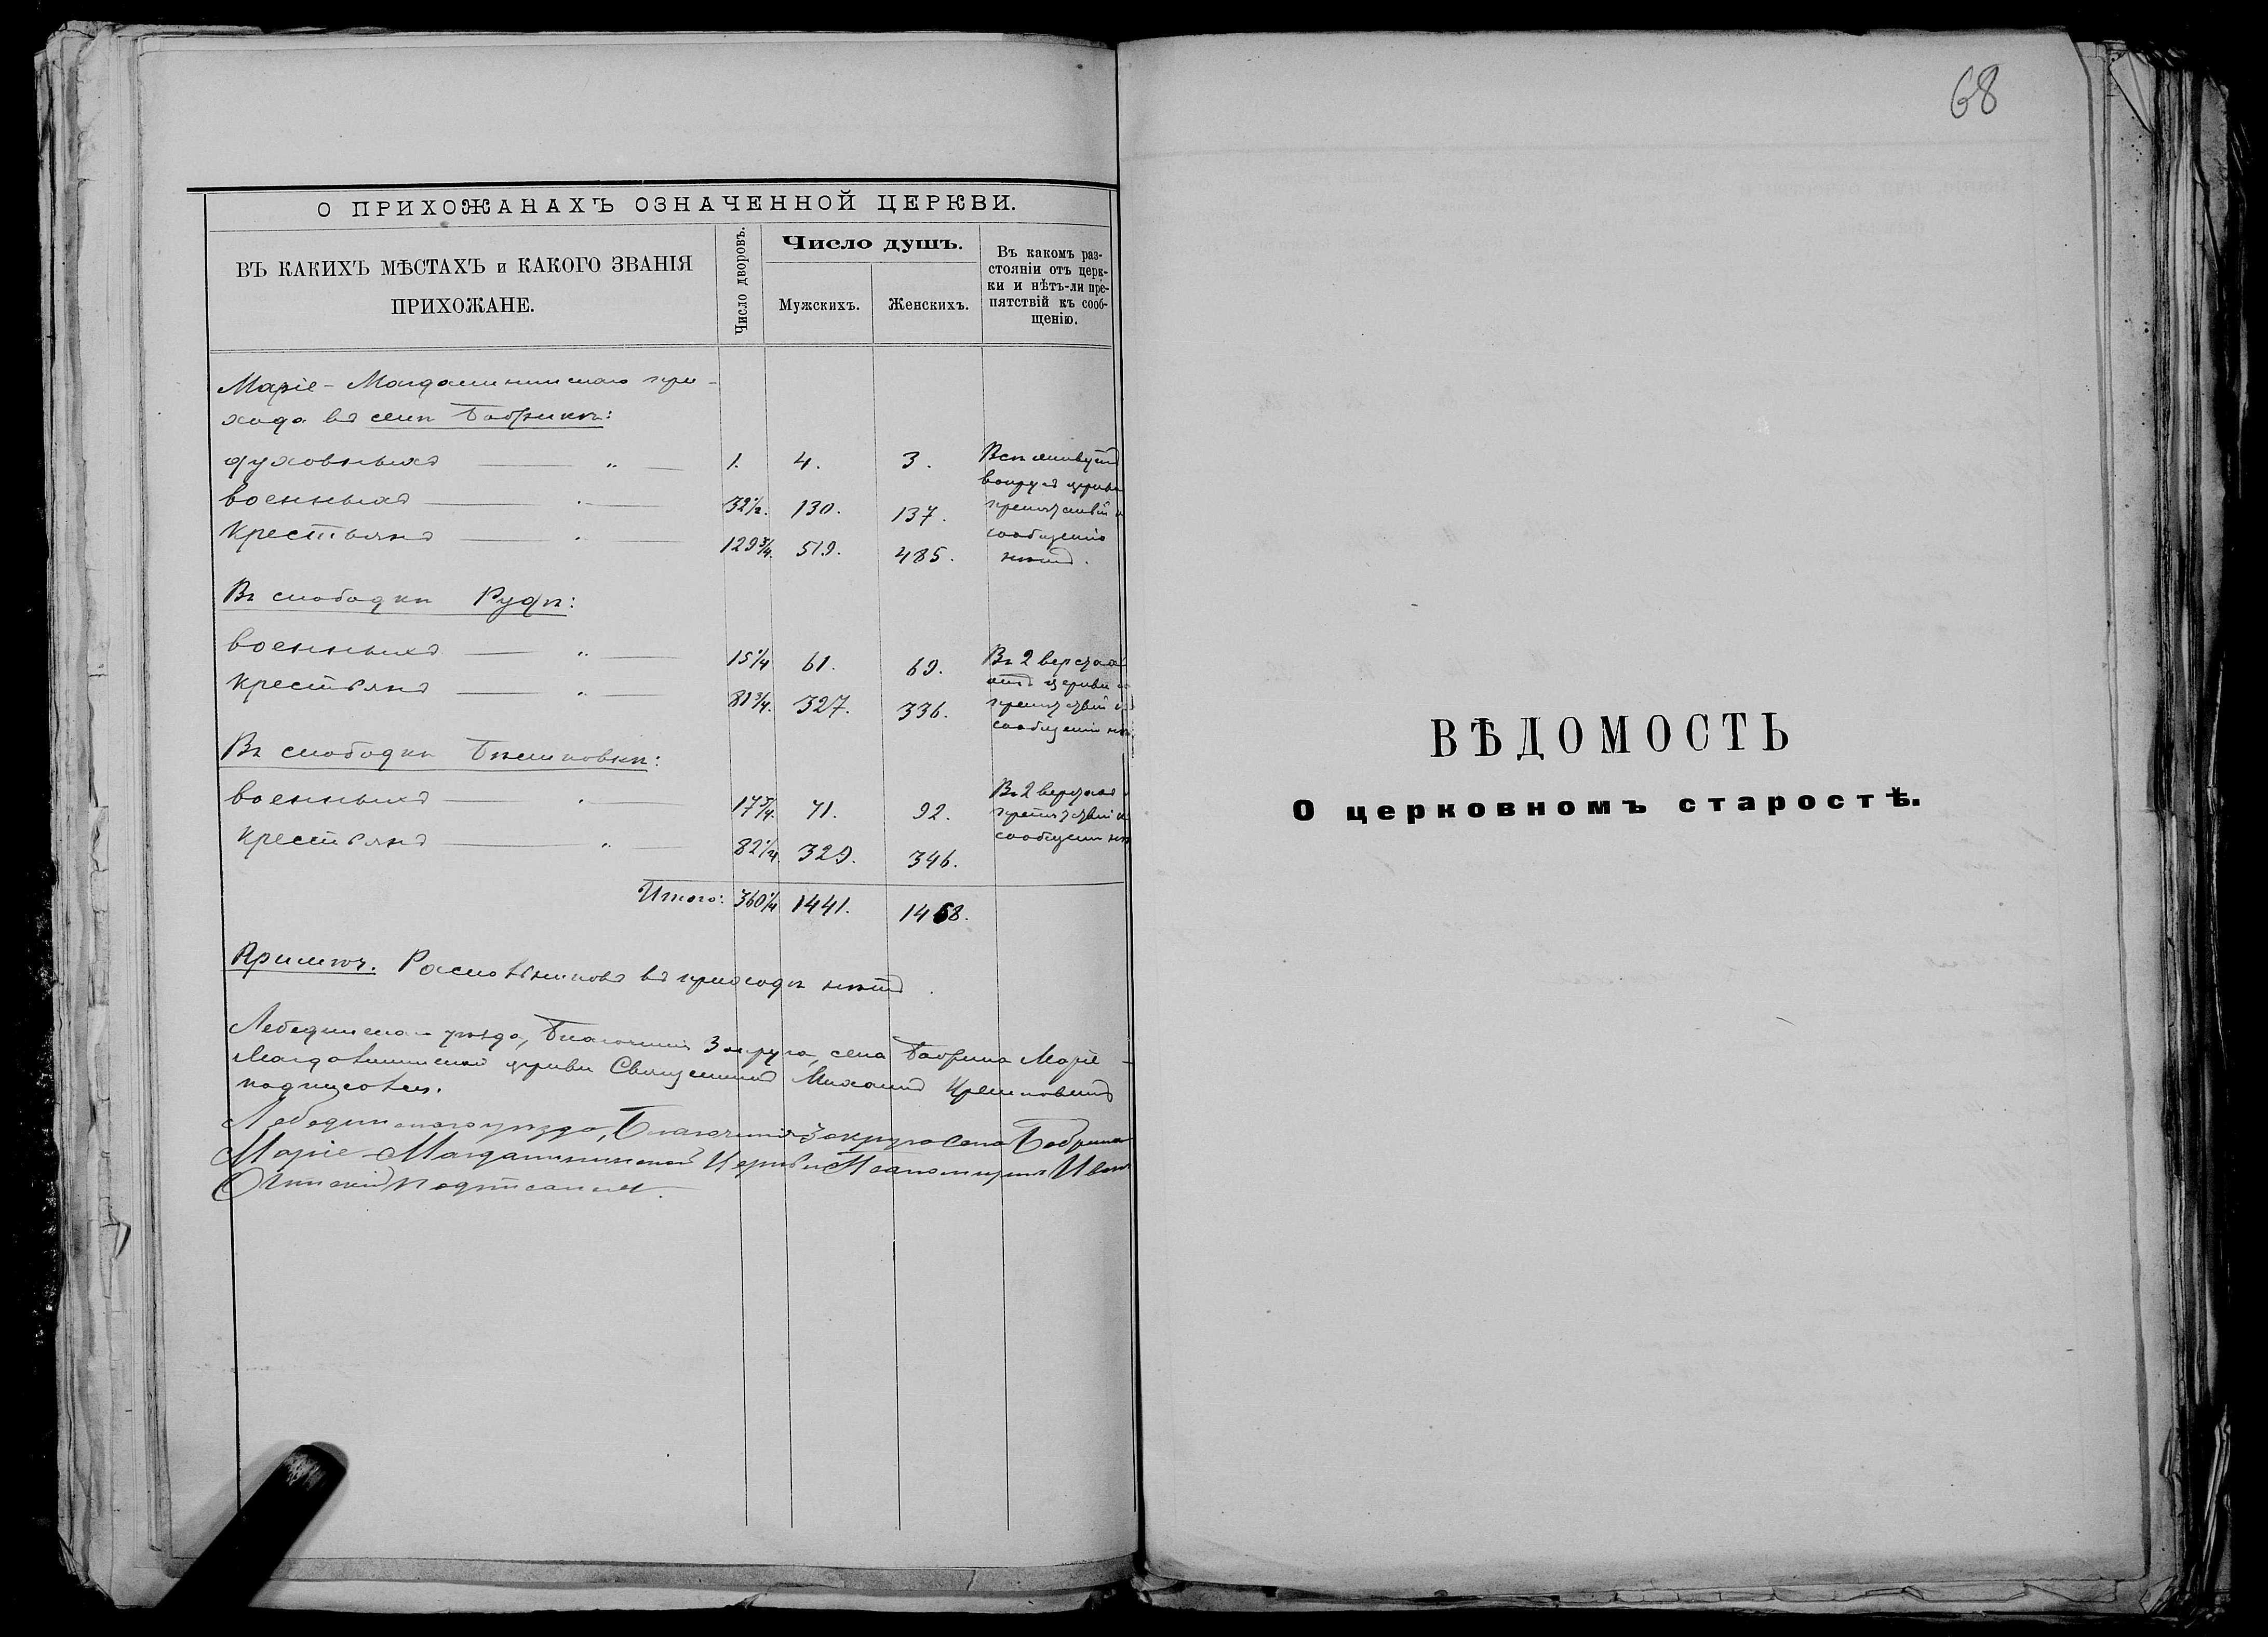 68
О ПРИХОЖАНАХЪ ОЗНАЧЕННОЙ ЦЕРКВИ.
ВЪ КАКИХЪ МѢСТАХЪ и КАКОГО ЗВАНІЯ
ПРИХОЖАНЕ.
Число дворовъ.
Число душъ.
Мужскихъ.
Женскихъ.
Въ какомъ раз-
стояніи отъ церк-
ки и нѣтъ-ли пре-
пятствій къ сооб-
щенію.
Маріе-Магдалининскаго при-
хода въ селѣ Бобрикѣ:
духовныхъ — „ — 1. 4. 3. Всѣ живутъ
вокругъ церкви
военныхъ — „ — 32½. 130. 137. препятствій
сообщенію
крестьянъ — „ — 129¾. 519. 485. нѣтъ.
Въ слободкѣ Рудѣ:
военныхъ — „ — 15¼ 61. 69. Въ 2 верстахъ
отъ церкви
крестьянъ — „ — 81¾. 327. 336. препятствій
сообщенію
Въ слободкѣ
военныхъ — „ — 17¾. 71. 92. Въ 2 верстахъ
препятствій
крестьянъ — „ — 82¼ 329. 346. сообщенію
Итого: 360¼ 1441. 1468.
Примѣч. въ приходѣ нѣтъ.
Лебединскаго уѣзда, Благочинія 3 округа, села Бобрика Маріе-
Магдалининской церкви Священникъ Михаилъ
подписался.
Лебединскаго уѣзда, Благочинія 3 округа села Бобрика
Маріе-Магдалининской Церкви Псаломщикъ Иванъ
подписался.
ВѢДОМОСТЬ
О церковномъ старостѣ.